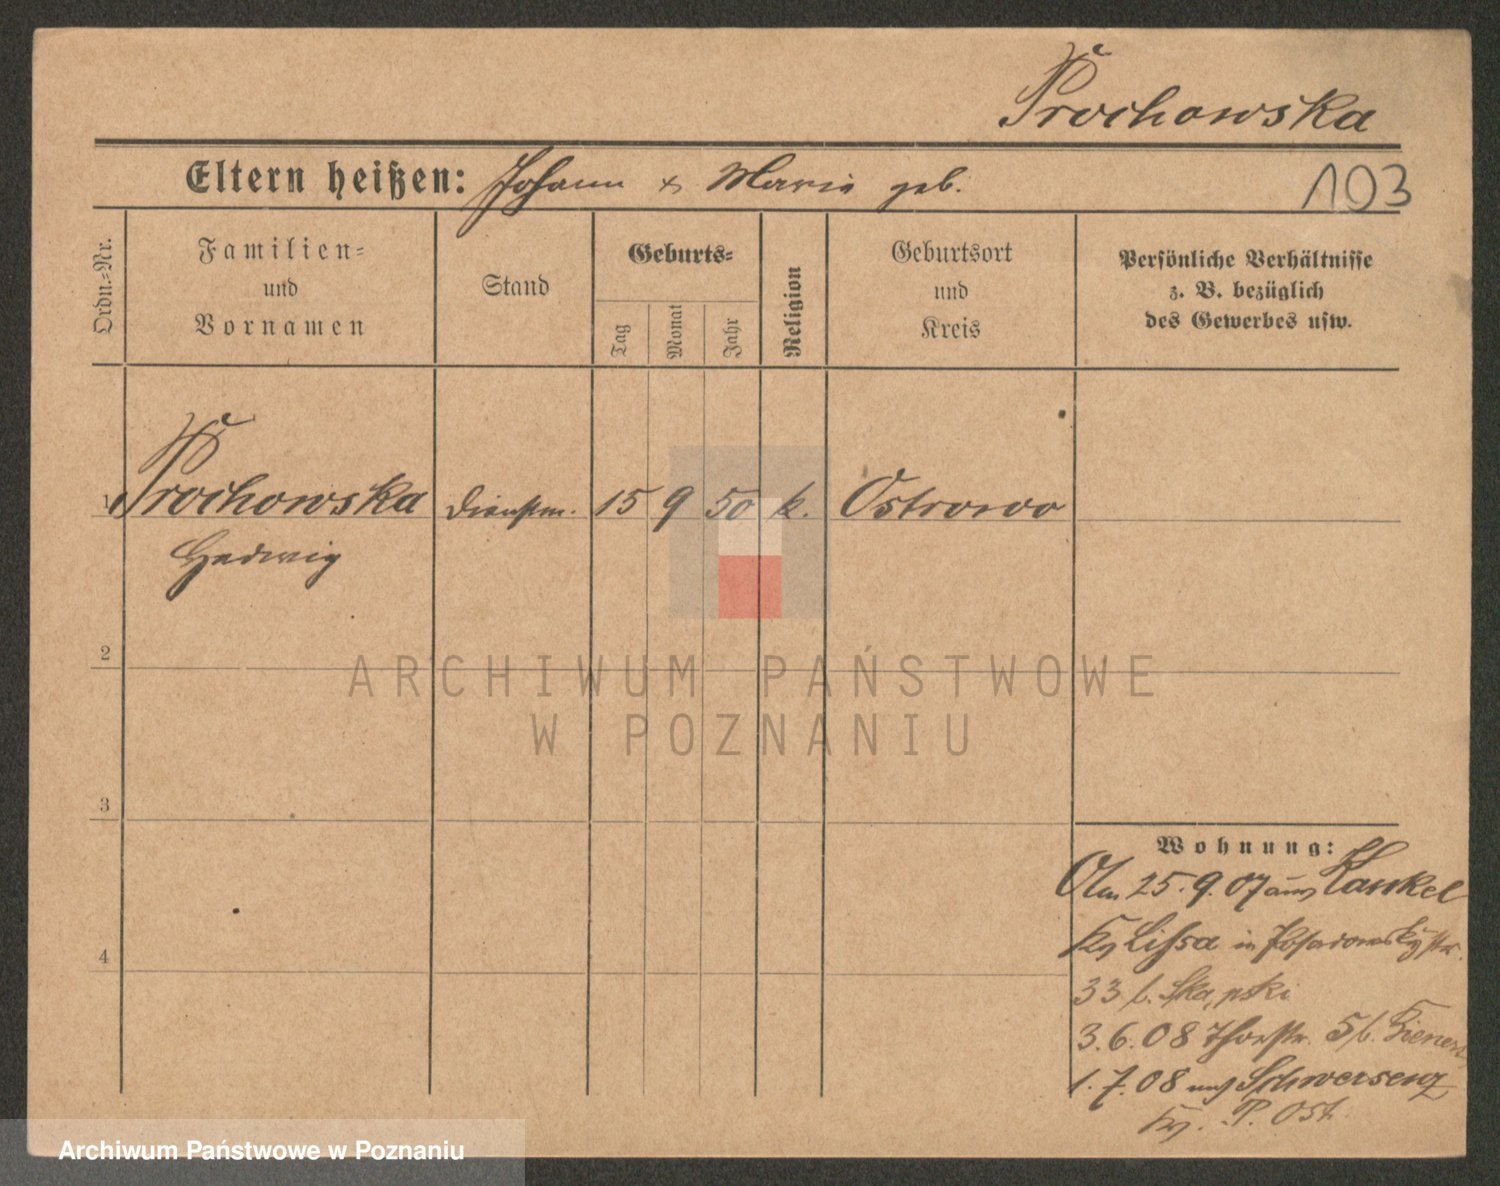 Prochowska
Eltern heißen: Johann & Marie geb.
103
Ordn.=Nr.
Familien=
und
Vornamen
Stand
Geburts=
Tag
Monat
Jahr
Religion
Geburtsort
und
Kreis
Persönliche Verhältnisse
z. B. bezüglich
des Gewerbes usw.
1 Prochowska Dienstm. 15 9 50 k. Ostrowo
Hedwig
2
3
4
Wohnung:
Am 25.9.07 aus Kankel
Kr Lissa in Posadowskystr.
33 b.
3.6.08 Thorstr. 5 b.
1.7.08 nach Schwersenz
Kr. P. Ost.
ARCHIWUM PAŃSTWOWE
W POZNANIU
Archiwum Państwowe w Poznaniu